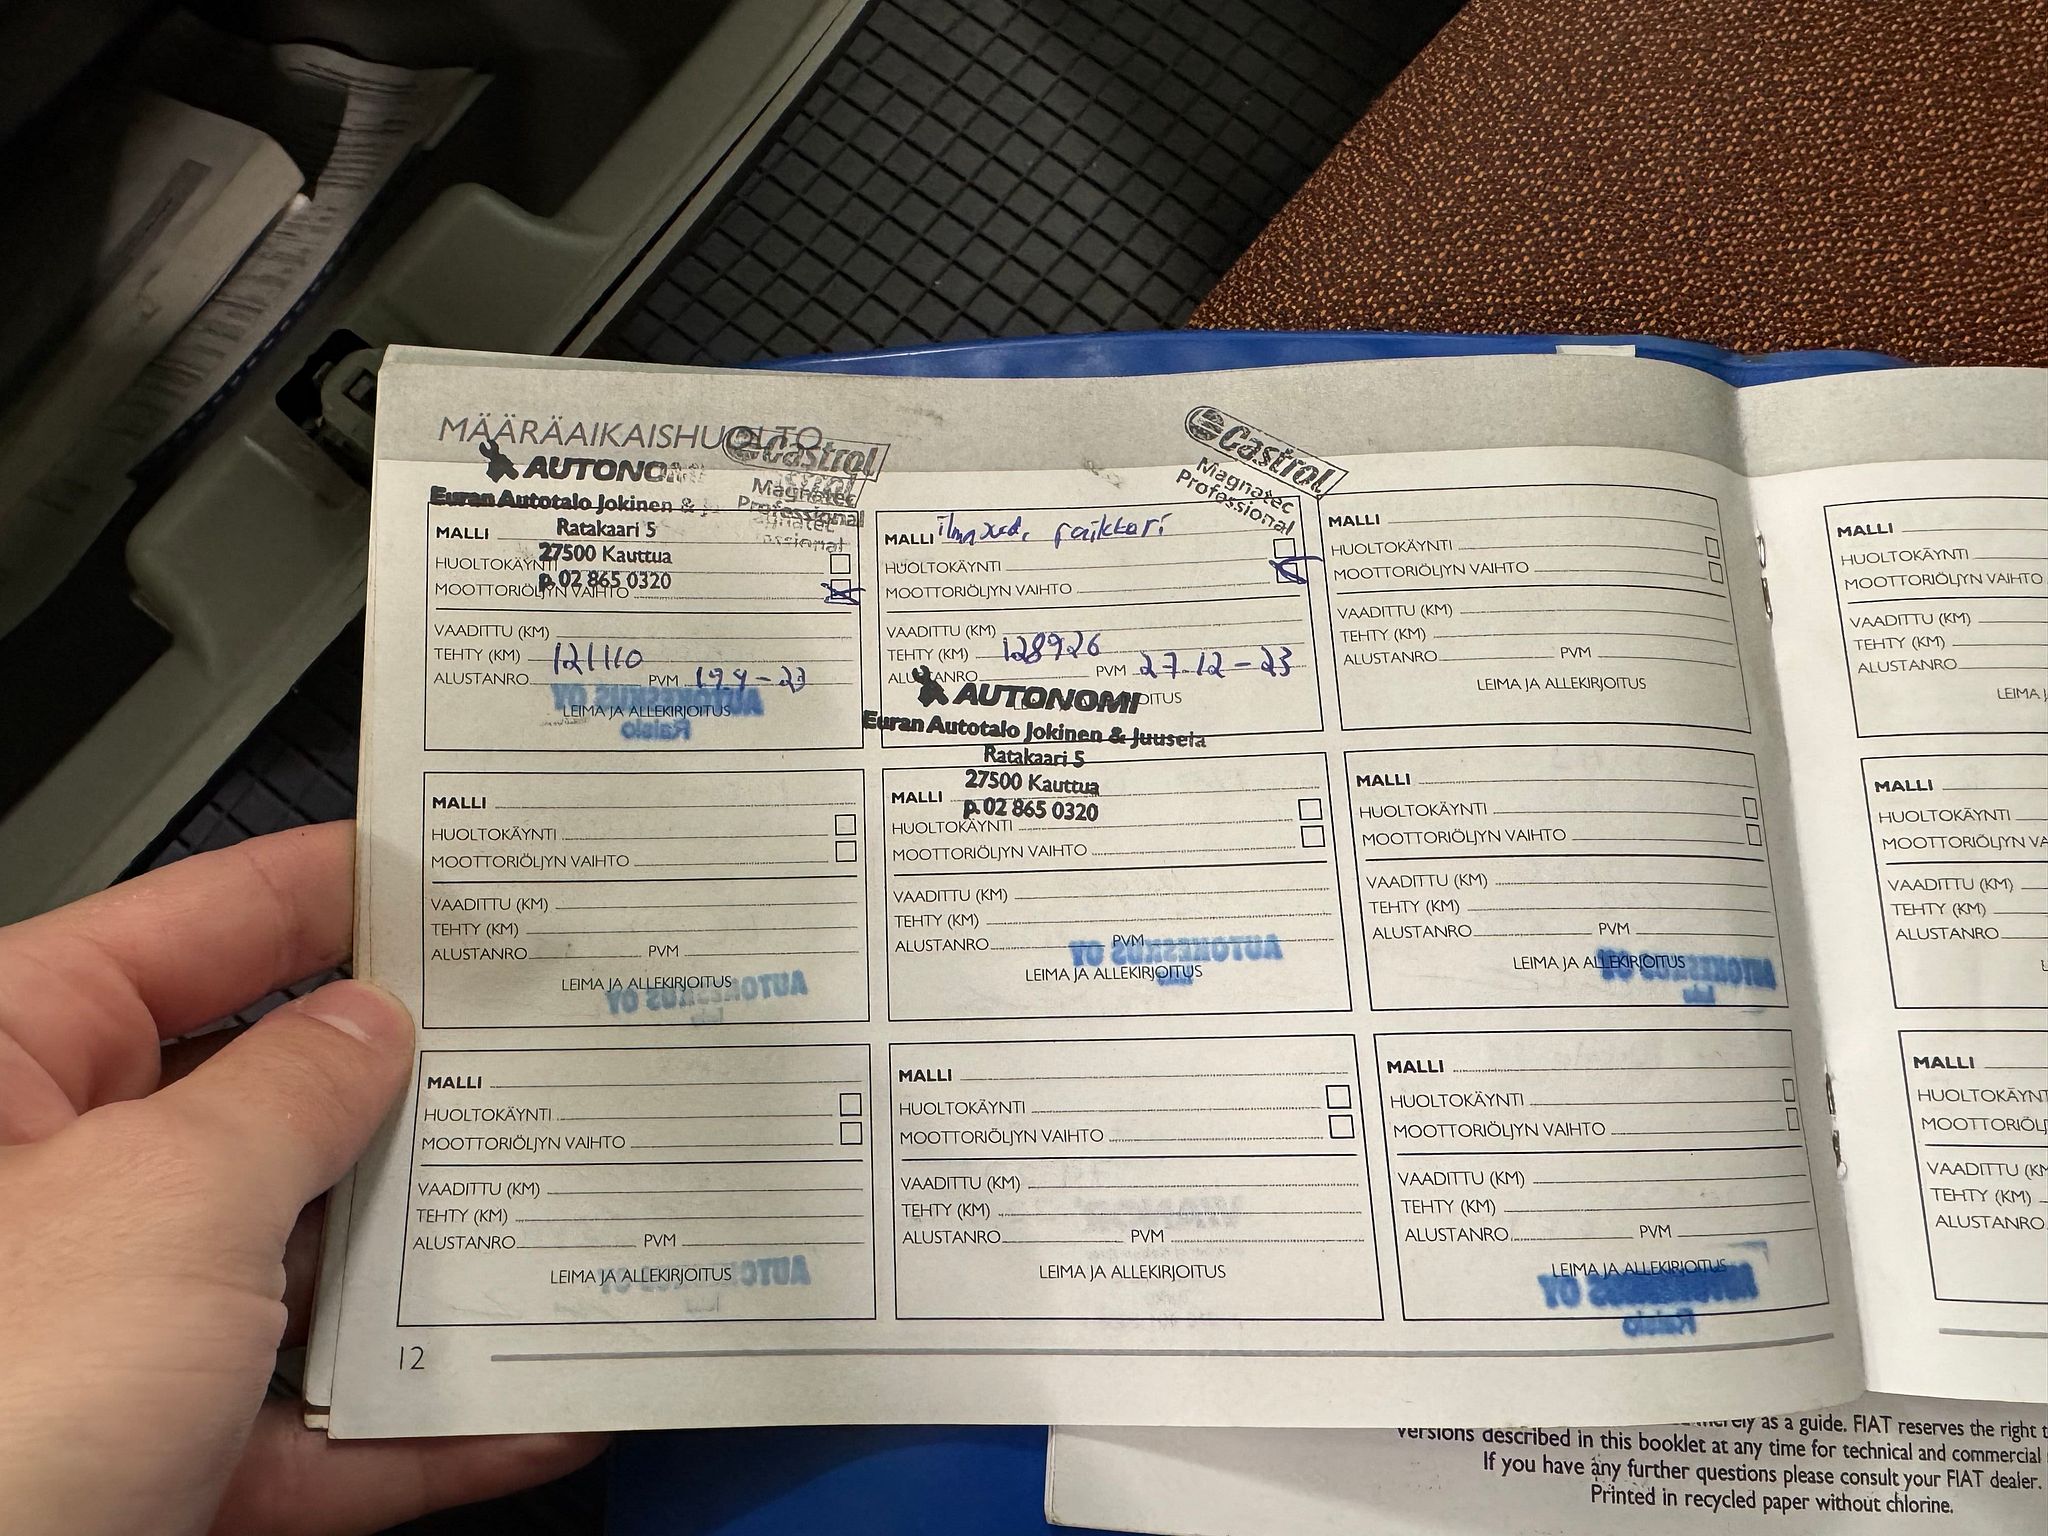 MÄÄRÄAIKAISHUOLTO
AUTONOMI
Castrol
Magnatec
Professional
Euran Autotalo Jokinen &
Ratakaari 5
27500 Kauttua
p. 02 865 0320
MALLI
HUOLTOKÄYNTI
MOOTTORIÖLJYN VAIHTO
VAADITTU (KM)
TEHTY (KM) 121110
ALUSTANRO PVM 19.4-23
LEIMA JA ALLEKIRJOITUS
AUTOKESKUS OY
Raisio
Castrol
Magnatec
Professional
MALLI
HUOLTOKÄYNTI
MOOTTORIÖLJYN VAIHTO
VAADITTU (KM)
TEHTY (KM) 128926
ALUSTANRO PVM 27.12-23
AUTONOMI
Euran Autotalo Jokinen & Juusela
Ratakaari 5
27500 Kauttua
p. 02 865 0320
MALLI
HUOLTOKÄYNTI
MOOTTORIÖLJYN VAIHTO
VAADITTU (KM)
TEHTY (KM)
ALUSTANRO PVM
LEIMA JA ALLEKIRJOITUS
MALLI
HUOLTOKÄYNTI
MOOTTORIÖLJYN VAIHTO
VAADITTU (KM)
TEHTY (KM)
ALUSTANRO
LEIMA
MALLI
HUOLTOKÄYNTI
MOOTTORIÖLJYN VAIHTO
VAADITTU (KM)
TEHTY (KM)
ALUSTANRO PVM
LEIMA JA ALLEKIRJOITUS
AUTOKESKUS OY
MALLI
HUOLTOKÄYNTI
MOOTTORIÖLJYN VAIHTO
VAADITTU (KM)
TEHTY (KM)
ALUSTANRO PVM
LEIMA JA ALLEKIRJOITUS
AUTOKESKUS OY
MALLI
HUOLTOKÄYNTI
MOOTTORIÖLJYN VAIHTO
VAADITTU (KM)
TEHTY (KM)
ALUSTANRO PVM
LEIMA JA ALLEKIRJOITUS
AUTOKESKUS OY
MALLI
HUOLTOKÄYNTI
MOOTTORIÖLJYN VA
VAADITTU (KM)
TEHTY (KM)
ALUSTANRO
MALLI
HUOLTOKÄYNTI
MOOTTORIÖLJYN VAIHTO
VAADITTU (KM)
TEHTY (KM)
ALUSTANRO PVM
LEIMA JA ALLEKIRJOITUS
AUTOKESKUS OY
MALLI
HUOLTOKÄYNTI
MOOTTORIÖLJYN VAIHTO
VAADITTU (KM)
TEHTY (KM)
ALUSTANRO PVM
LEIMA JA ALLEKIRJOITUS
MALLI
HUOLTOKÄYNTI
MOOTTORIÖLJYN VAIHTO
VAADITTU (KM)
TEHTY (KM)
ALUSTANRO PVM
LEIMA JA ALLEKIRJOITUS
AUTOKESKUS OY
Raisio
MALLI
HUOLTOKÄYNT
MOOTTORIÖLJ
VAADITTU (KM
TEHTY (KM)
ALUSTANRO
12
merely as a guide. FIAT reserves the right
versions described in this booklet at any time for technical and commercial
If you have any further questions please consult your FIAT dealer.
Printed in recycled paper without chlorine.